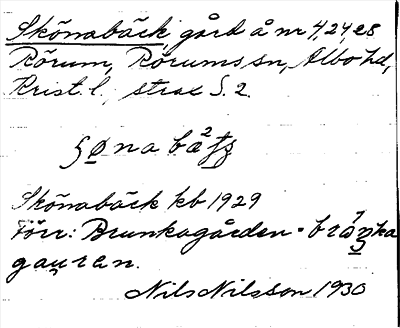 Skönabäck, gård å nr 4, 24 es
Rörum, Rörums sn, Albo hd,
Krist. l., strax S. 2.
Skönabäck kb 1929
Förr: Brunkagården -
Nils Nilsson 1930